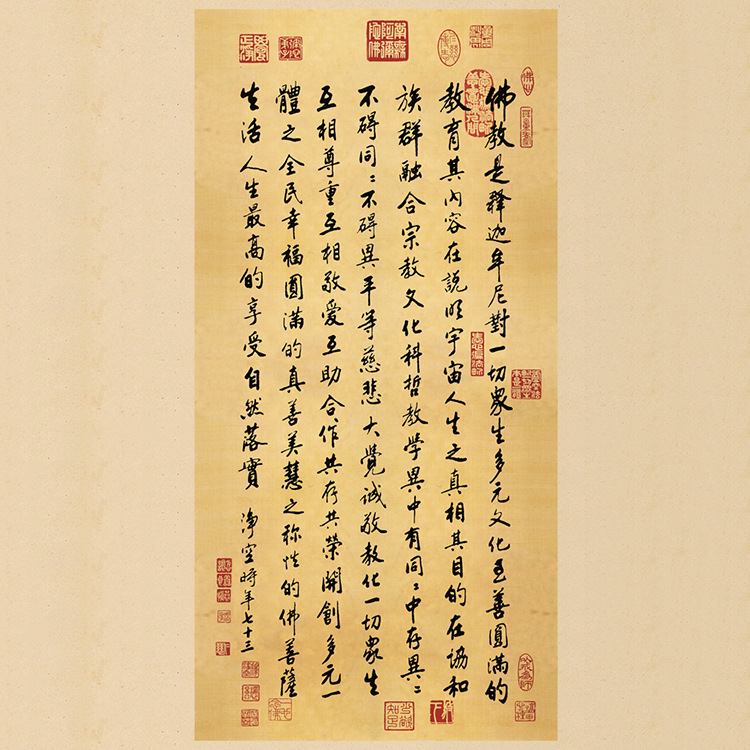 佛教是釋迦牟尼對一切衆生多元文化至善圓滿的
教育其內容在説明宇宙人生之真相其目的在協和
族群融合宗教文化科哲教學異中有同〻中存異〻
不碍同〻不碍異平等慈悲大覺誠敬教化一切衆生
互相尊重互相敬愛互助合作共存共榮開創多元一
體之全民幸福圓滿的真善美慧之称性的佛菩薩
生活人生最高的享受自然落實
淨空時年七十三
南無阿彌陀佛